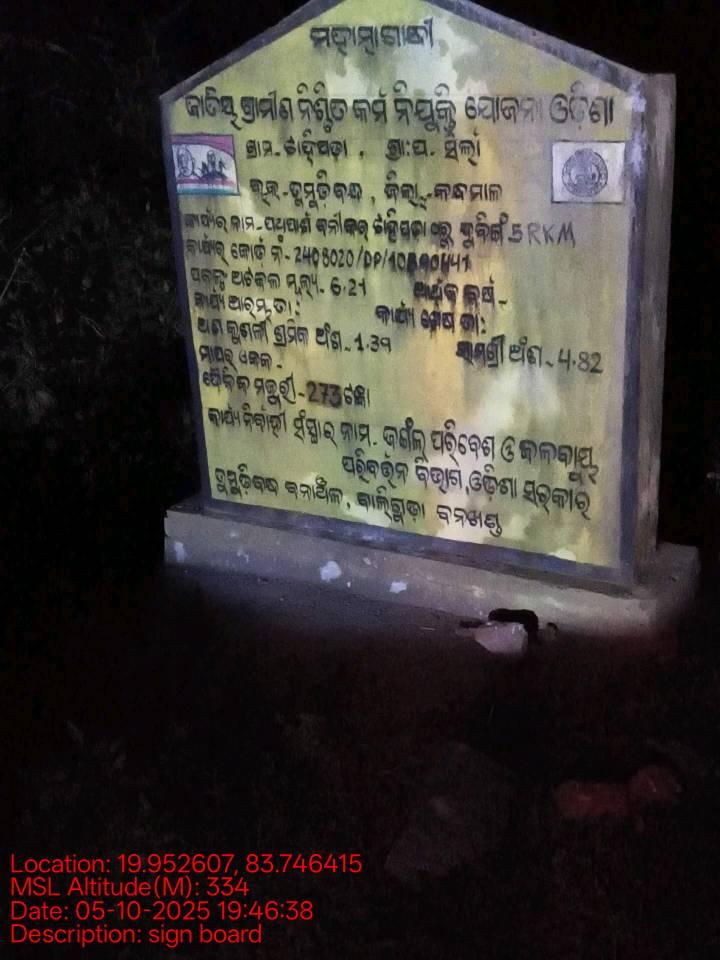 ମହାତ୍ମାଗାନ୍ଧୀ
ଜାତିୟ ଗ୍ରାମୀଣ ନିଶ୍ଚିତ କର୍ମ ନିଯୁକ୍ତି ଯୋଜନା ଓଡ଼ିଶା
ଗ୍ରାମ- ଗ୍ରା:ପ-
ବ୍ଲକ-ତୁମୁଡ଼ିବନ୍ଧ, ଜିଲ୍ଲା-କନ୍ଧମାଳ
କାର୍ଯ୍ୟର ନାମ- 5 RKM
କାର୍ଯ୍ୟର କୋଡ ନଂ- 2408020/DP/
ପ୍ରକଳ୍ପ ଅଟକଳ ମୂଲ୍ୟ- 6.21 ଆର୍ଥିକ ବର୍ଷ-
କାର୍ଯ୍ୟ ଆରମ୍ଭ ତା: କାର୍ଯ୍ୟ ଶେଷ ତା:
ଅଣ କୁଶଳୀ ଶ୍ରମିକ ଅଂଶ-1.39 ସାମଗ୍ରୀ ଅଂଶ-4.82
ମାପର ଓଜନ-
ଦୈନିକ ମଜୁରୀ-273ଟଙ୍କା
କାର୍ଯ୍ୟ ନିର୍ବାହୀ ସଂସ୍ଥାର ନାମ- ଜଙ୍ଗଲ ପରିବେଶ ଓ ଜଳବାୟୁ
ପରିବର୍ତ୍ତନ ବିଭାଗ, ଓଡ଼ିଶା ସରକାର
ତୁମୁଡ଼ିବନ୍ଧ ବନାଞ୍ଚଳ, ବାଲିଗୁଡ଼ା ବନଖଣ୍ଡ
Location: 19.952607, 83.746415
MSL Altitude(M): 334
Date: 05-10-2025 19:46:38
Description: sign board